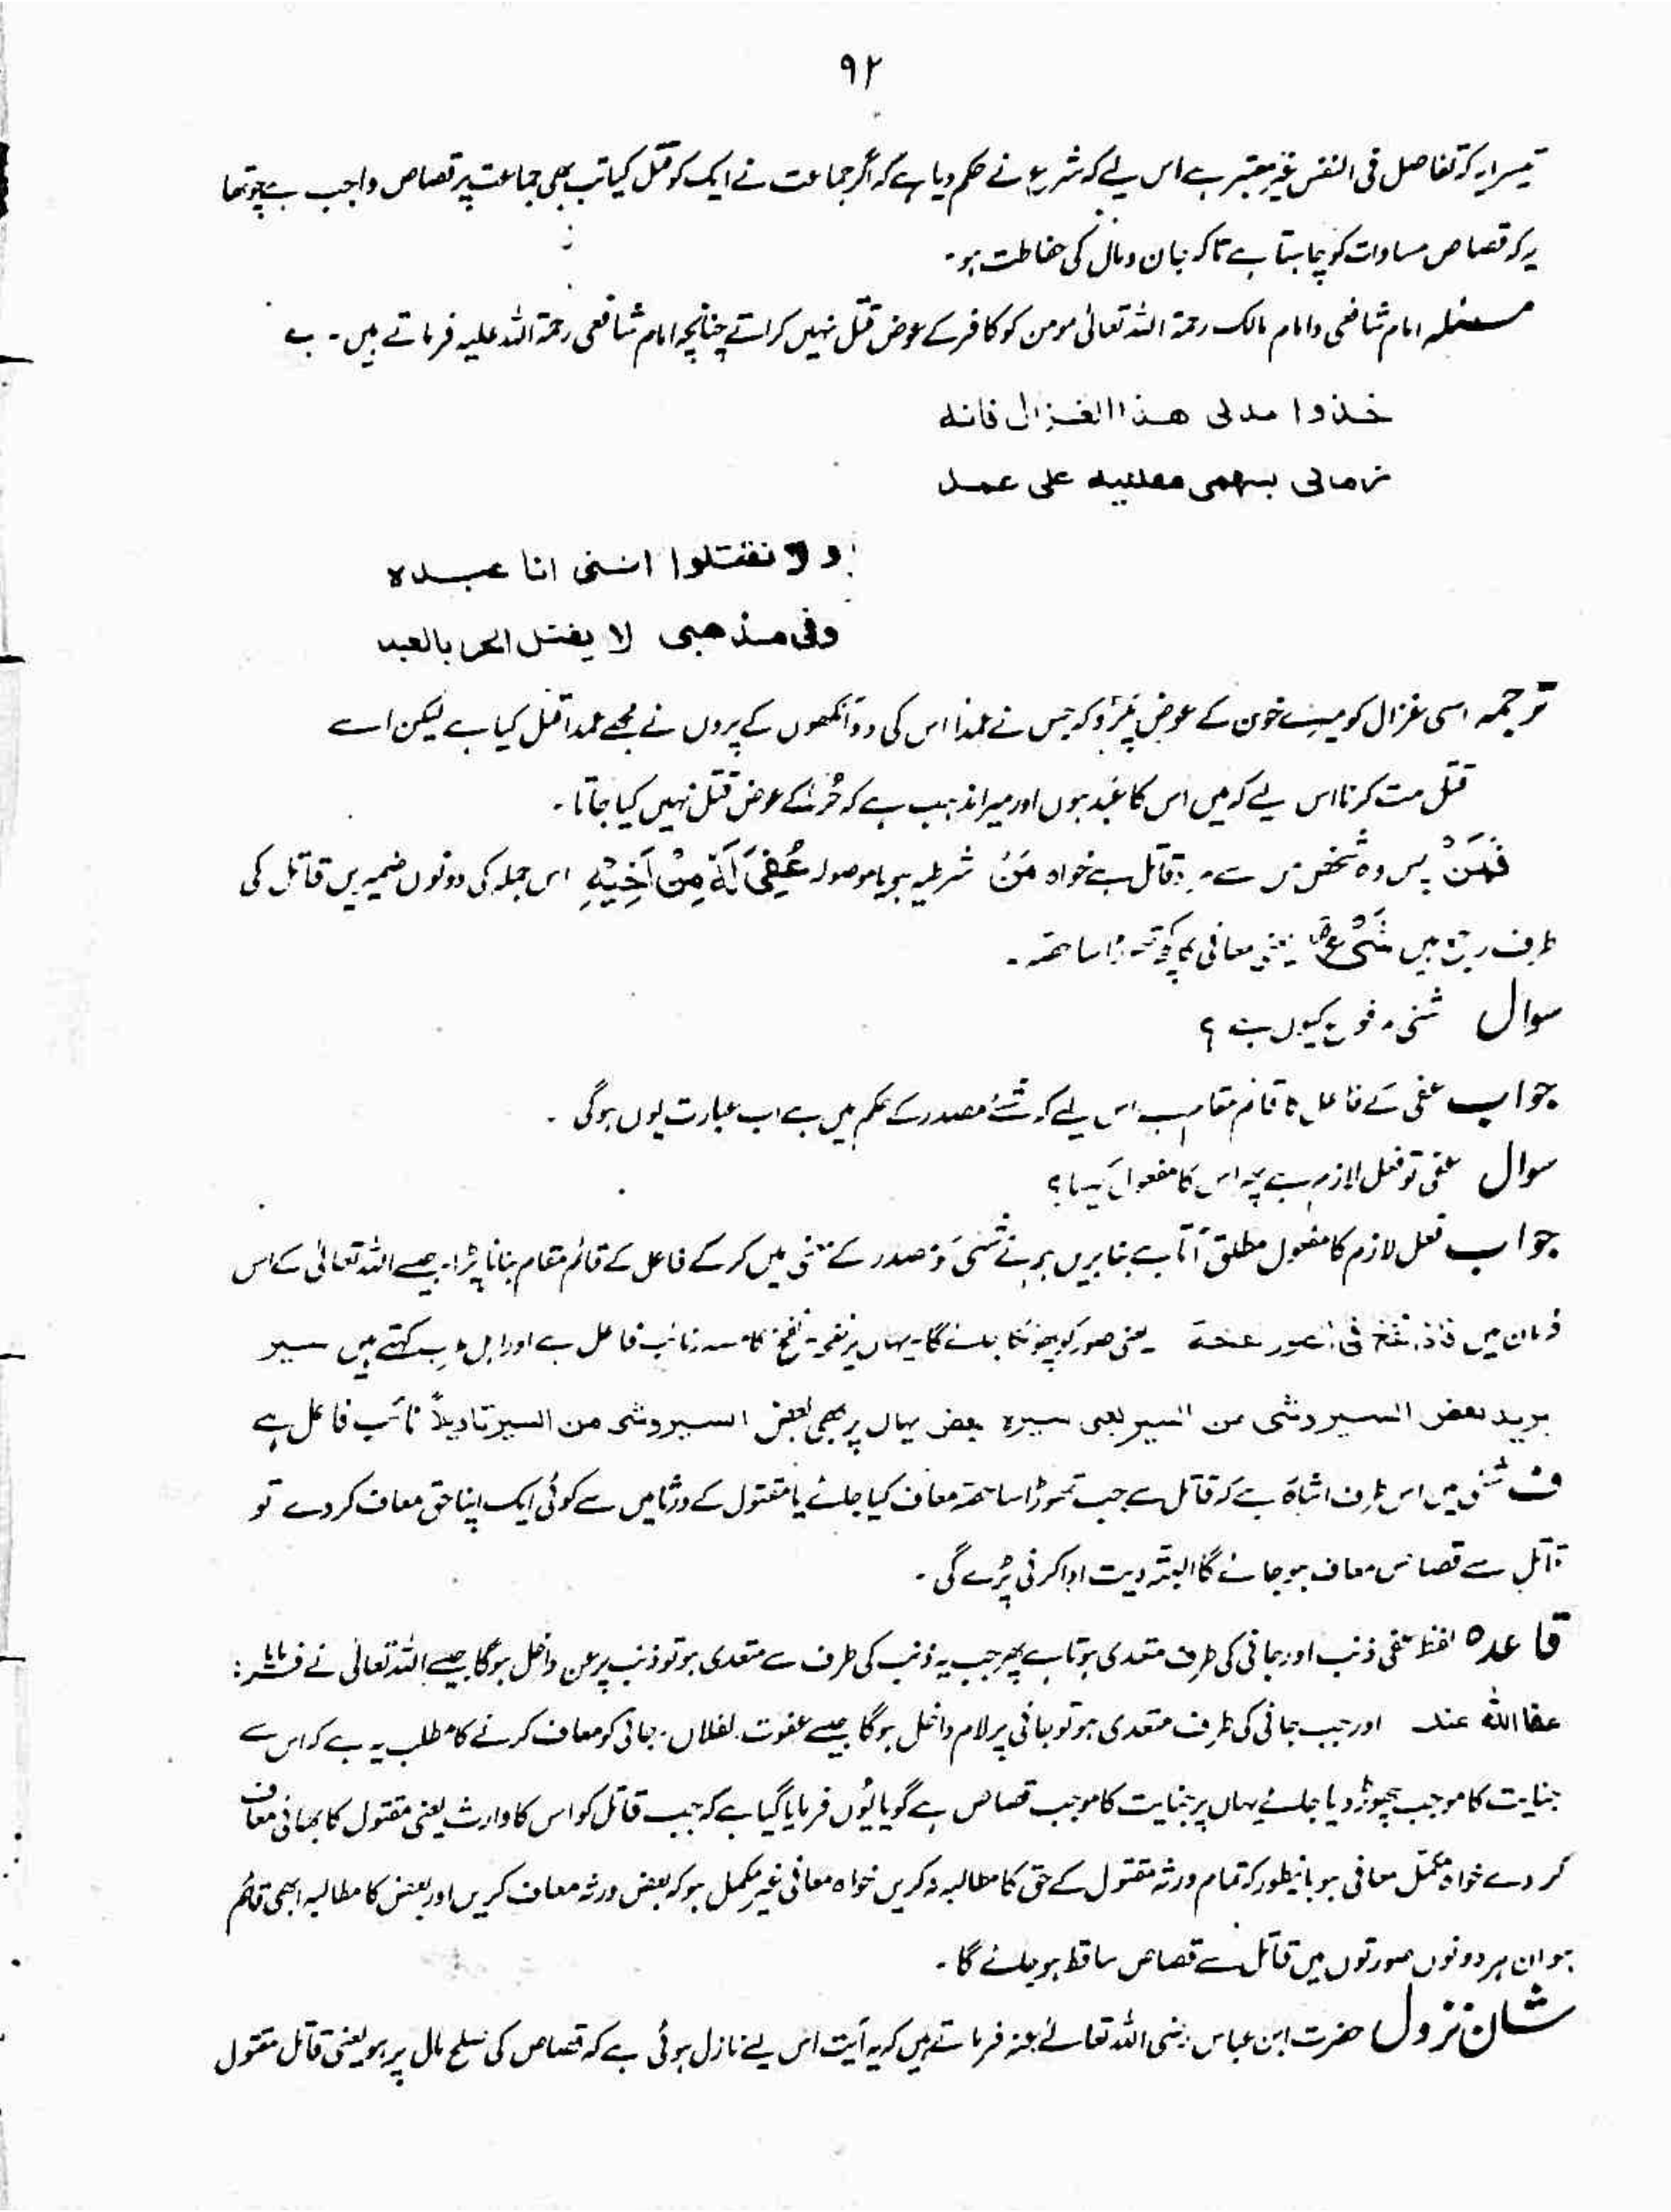 ۹۲
تیسرا یہ کہ تفاضل فی النفس غیر معتبر ہے اس لیے کہ شرع نے حکم دیا ہے کہ اگر جماعت نے ایک کو قتل کیا تب بھی جماعت پر قصاص واجب ہے چوتھا
یہ کہ قصاص مساوات کو چاہتا ہے تاکہ جان و مال کی حفاظت ہو۔
مسئلہ امام شافعی و امام مالک رحمۃ اللہ تعالیٰ مومن کو کافر کے عوض قتل نہیں کراتے چنانچہ امام شافعی رحمۃ اللہ علیہ فرماتے ہیں۔
خذوا بدمی ھذا الغزال فانہ
رمانی بسھمی مقلتیہ علی عمد
ولا تقتلوا اننی انا عبدہ
وفی مذھبی لا یقتل الحر بالعبد
ترجمہ اسی غزال کو میرے خون کے عوض پکڑو کہ جس نے عمداً اس کی دو آنکھوں کے پروں نے مجھے عمداً قتل کیا ہے لیکن اسے
قتل مت کرنا اس لیے کہ میں اس کا عَبد ہوں اور میرا مذہب ہے کہ حُر کے عوض قتل نہیں کیا جاتا۔
فَمَنْ پس وہ شخص قاتل ہے خواہ مَنْ شرطیہ ہو یا موصولہ عُفِیَ لَہٗ مِنْ اَخِیْہِ اس جملہ کی دونوں ضمیریں قاتل کی
طرف راجع ہیں شَیْءٌ یعنی معافی کا کچھ تھوڑا سا حصہ۔
سوال شئی مرفوع کیوں ہے ؟
جواب عفی کے فاعل کا قائم مقام ہے اس لیے کہ شئے مصدر کے حکم میں ہے اب عبارت یوں ہوگی۔
سوال عفی تو فعل لازم ہے پھر اس کا مفعول کیسا؟
جواب فعل لازم کا مفعول مطلق آتا ہے بنا بریں ہم نے شئی کو مصدر کے معنیٰ میں کر کے فاعل کے قائم مقام بنانا پڑا۔ جیسے اللہ تعالیٰ کے اس
فرمان میں فاذا نفخ فی الصور نفخۃ یعنی صور کو پھونکا جائے گا۔ یہاں پر نفخۃ نفخ کا مصدر نائب فاعل ہے اور اہل عرب کہتے ہیں سیر
بزید بعض السیر وشئی من السیر یعنی سیرہ بعض یہاں پر بھی بعض السیر وشئی من السیر تاویلاً نائب فاعل ہے
ف شئی میں اس طرف اشارہ ہے کہ قاتل سے جب تھوڑا سا حصہ معاف کیا جائے یا مقتول کے ورثا میں سے کوئی ایک اپنا حق معاف کر دے تو
قاتل سے قصاص معاف ہو جائے گا البتہ دیت ادا کرنی پڑے گی۔
قاعدہ لفظ عفی ذنب اور جانی کی طرف متعدی ہوتا ہے پھر جب یہ ذنب کی طرف سے متعدی ہو تو ذنب پر عن داخل ہو گا جیسے اللہ تعالیٰ نے فرمایا:
عفا اللہ عنک اور جب جانی کی طرف متعدی ہو تو جانی پر لام داخل ہو گا جیسے عفوت لفلان۔ جانی کو معاف کرنے کا مطلب یہ ہے کہ اس سے
جنایت کا موجب چھوڑ دیا جائے یہاں پر جنایت کا موجب قصاص ہے گویا یُوں فرمایا گیا ہے کہ جب قاتل کو اس کا وارث یعنی مقتول کا بھائی معاف
کر دے خواہ مکمل معافی ہو بانیطور کہ تمام ورثہ مقتول کے حق کا مطالبہ نہ کریں خواہ معافی غیر مکمل ہو کہ بعض ورثہ معاف کریں اور بعض کا مطالبہ ابھی قائم
ہو ان ہر دونوں صورتوں میں قاتل سے قصاص ساقط ہو جائے گا۔
شان نزول حضرت ابن عباس رضی اللہ تعالےٰ عنہ فرماتے ہیں کہ یہ آیت اس لیے نازل ہوئی ہے کہ قصاص کی صلح مال پر ہو یعنی قاتل مقتول